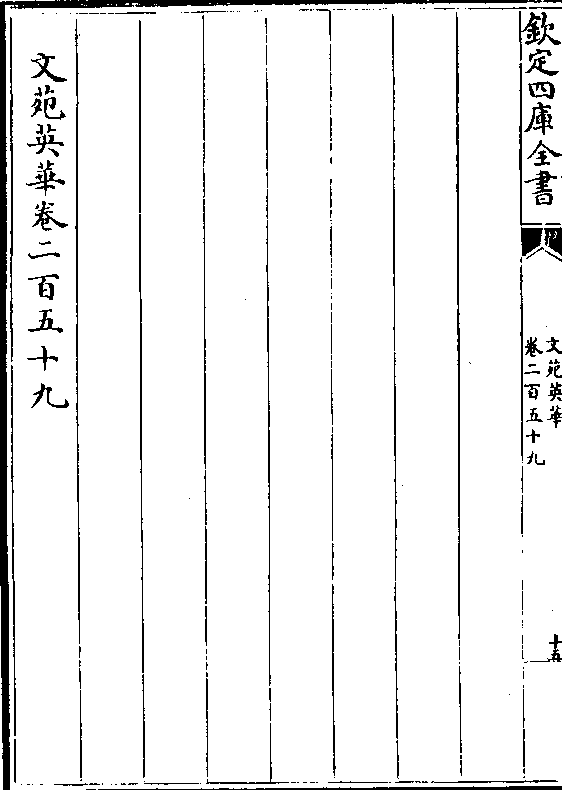 欽定四庫全書
文苑英華
卷二百五十九
十五
文苑英華卷二百五十九